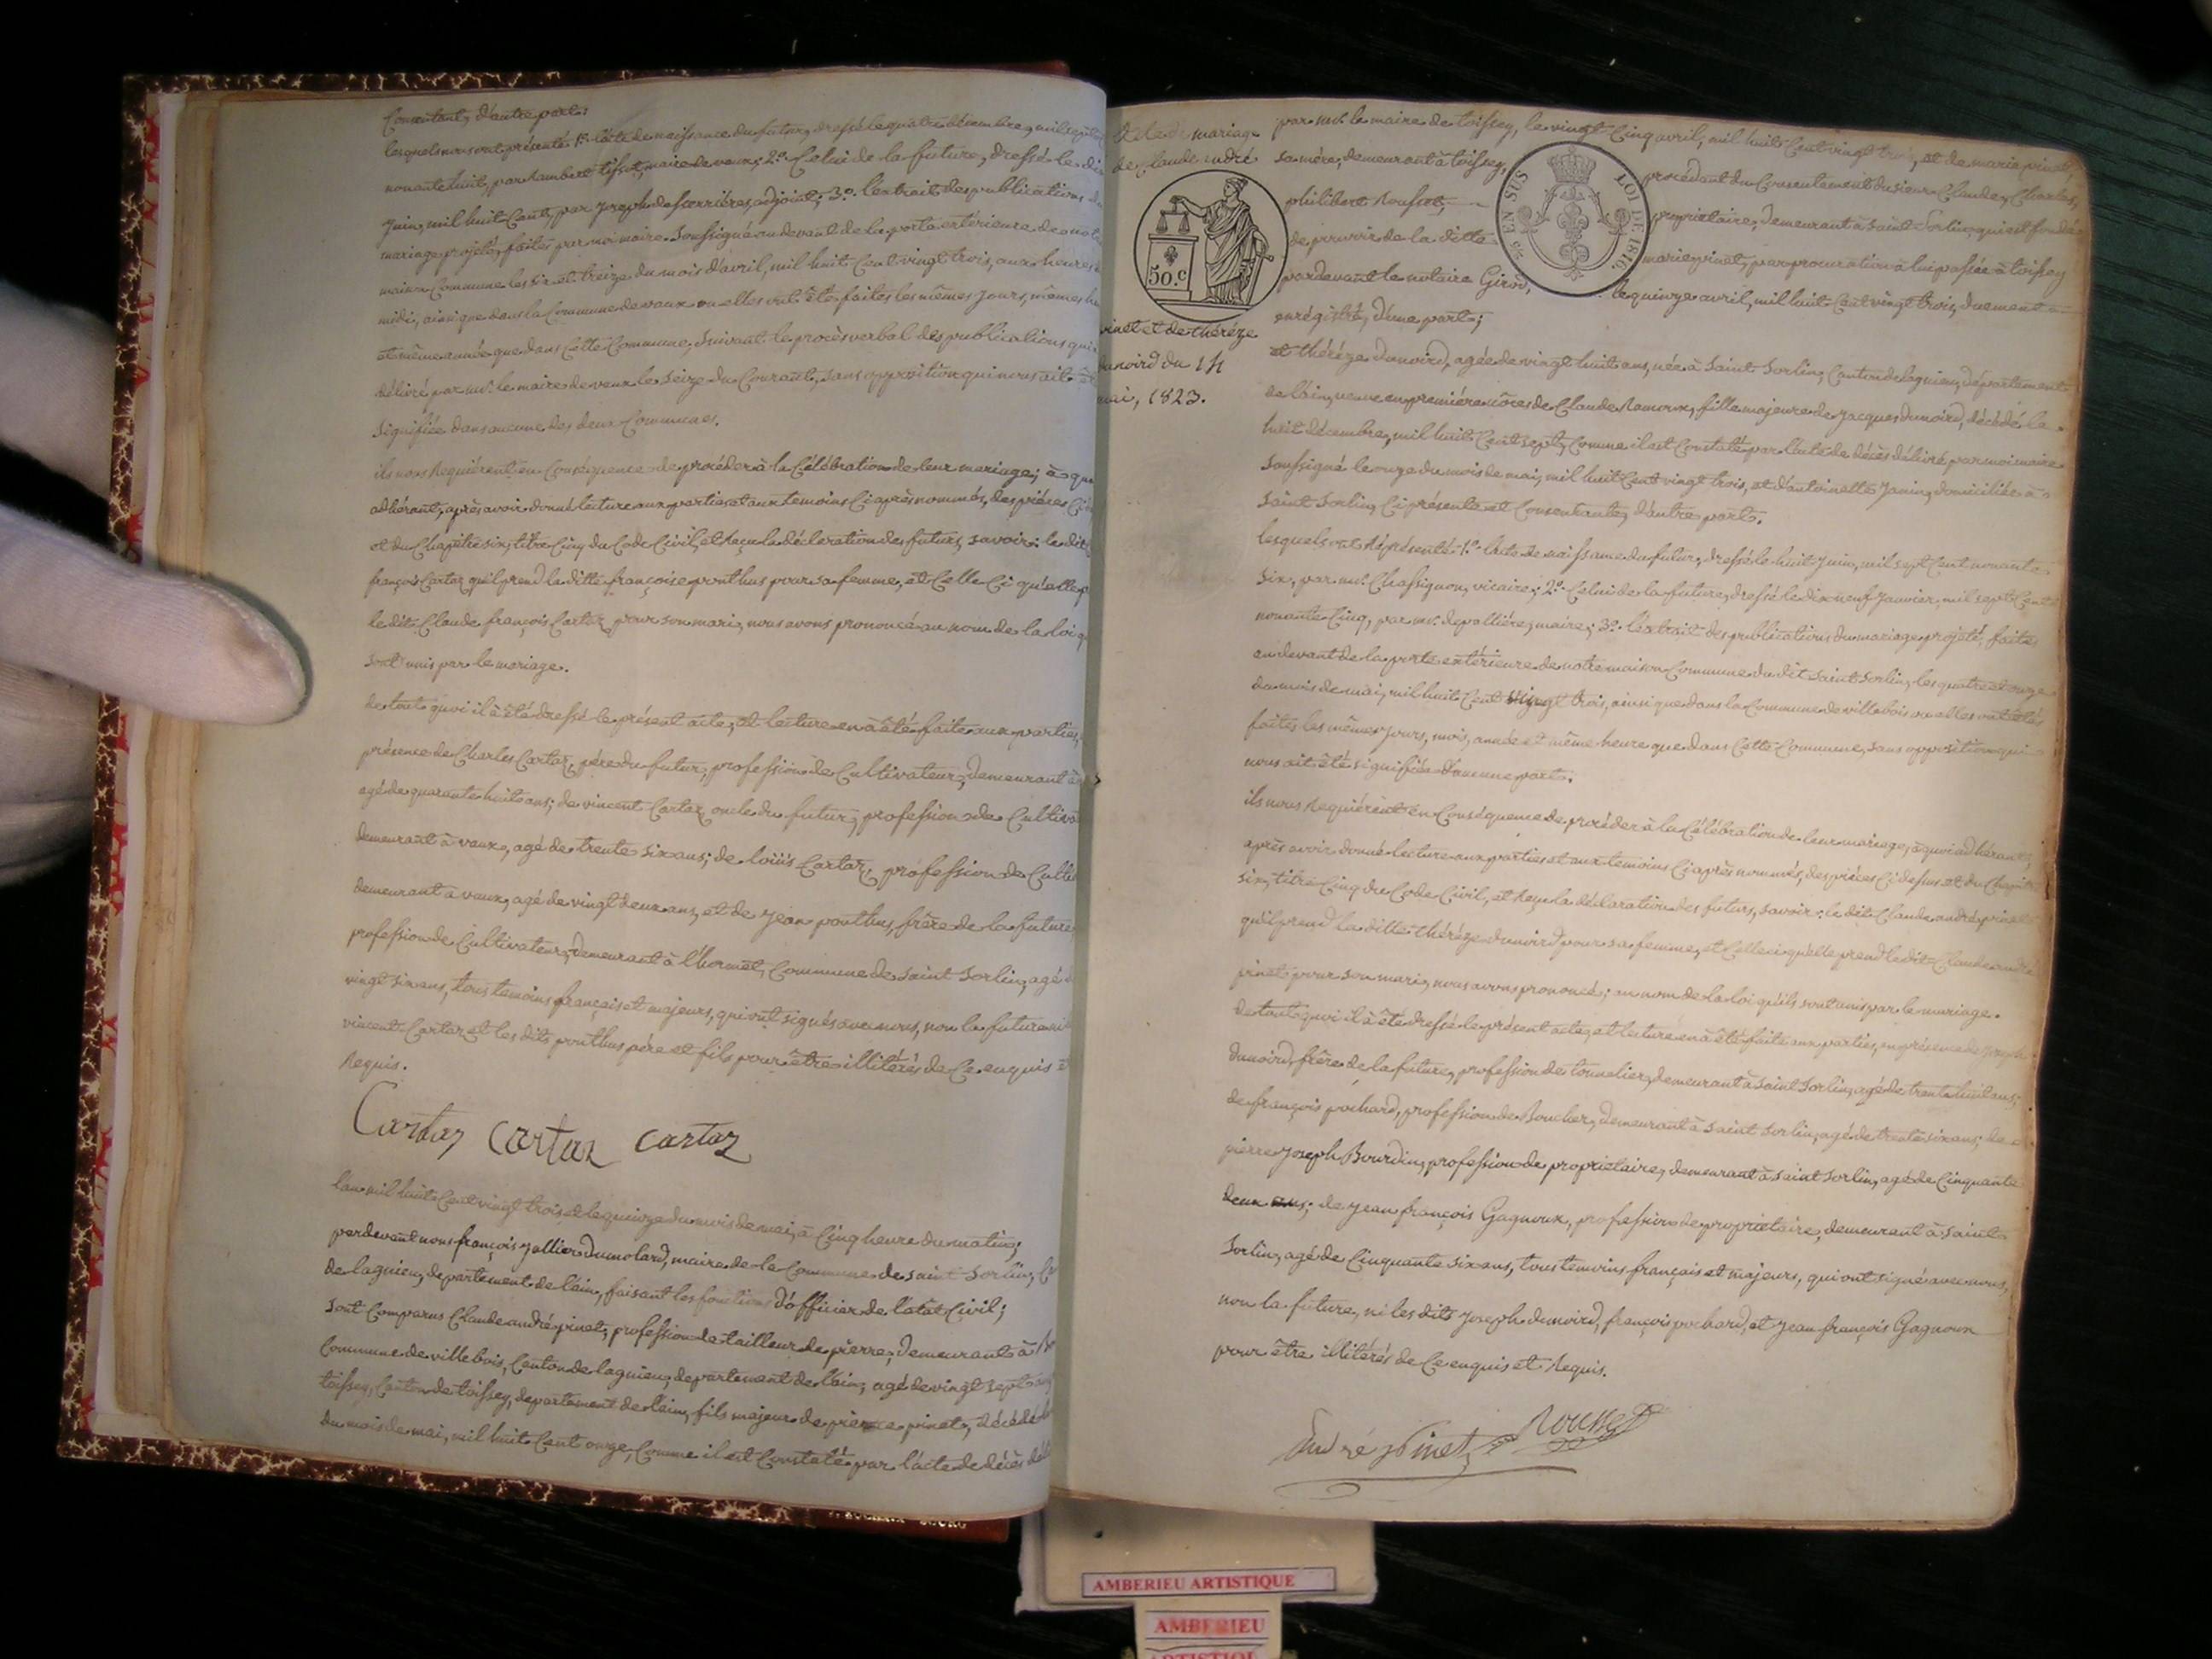 Consentant, d'autre part:
lesquels nous ont présenté 1º. l'acte de naissance du futur, dressé le quatre décembre, mil sept
nonante huit, par Lambert tissot, maire de vaux; 2º. Celui de la future, dressé le dix
Juin, mil huit Cent, par Joseph deferrières, adjoint; 3º. l'extrait des publications du
mariage projeté, faites par moi maire soussigné au devant de la porte extérieure de notre
maison Commune les six et treize du mois d'avril, mil huit Cent vingt trois, aux heures de
midi, ainsi que dans la Commune de vaux ou elles ont été faites les mêmes jours, mêmes
et même année que dans Cette Commune, suivant le procès verbal des publications qui
délivré par mr. le maire de vaux le seize du Courant, sans opposition qui nous ait
signifiée dans aucune des deux Communes.
ils nous Requiérent en Conséquence de procéder à la Célébration de leur mariage; à quoi
adhérant, après avoir donné lecture aux parties et aux temoins Ci après nommés, des pièces Ci
et du Chapitre six, titre Cinq du Code Civil, et Reçu la déclaration des futurs, savoir: le dit
françois Cartaz qu'il prend la ditte françoise ponthus pour sa femme, et Celle Ci qu'elle p
le dit Claude françois Cartaz pour son mari, nous avons prononcé au nom de la loi q
sont unis par le mariage.
de tout quoi il à été dressé le présent acte, et lecture en à été faite aux parties,
présence de Charles Cartaz, père du futur, profession de Cultivateur, demeurant à
agé de quarante huit ans; de vincent Cartaz, oncle du futur, profession de Cultiva
demeurant à vaux, agé de trente six ans; de loüis Cartaz, profession de Culti
demeurant à vaux, agé de vingt deux ans, et de Jean ponthus, frère de la future
profession de Cultivateur, demeurant à l'hormet, Commune de saint Sorlin, agé d
vingt six ans, tous temoins français et majeurs, qui ont signés avec nous, non la future ni
vincent Cartaz et les dits ponthus père et fils pour être illitérés de Ce enquis et
Requis.
Cartaz Cartaz Cartaz
lan mil huit Cent vingt trois et le quinze du mois de mai, à Cinq heure du matin;
pardevant nous françois Jallier Dumolard, maire de la Commune de saint Sorlin,
de lagnieu, departement de l'ain, faisant les fonctions d'officier de l'état Civil;
sont Comparus Claude andré pinet, profession de tailleur de pierre, demeurant à
Commune de villebois, Canton de lagnieu, departement de l'ain, agé de vingt sept
toissey, Canton de toissey, departement de l'ain, fils majeur de pierre pinet, décédé
du mois de mai, mil huit Cent onze, Comme il est Constaté par l'acte de décès
Acte de mariage
de Claude andré
50.c
pinet et de théréze
dunoird du 14
mai, 1823.
par mr. le maire de toissey, le vingt Cinq avril, mil huit Cent vingt trois, et de marie pinet,
sa mère, demeurant à toissey, procédant du Consentement du sieur Claude, Charles,
philibert Rousset, propriétaire, demeurant à saint Sorlin, qui est fondé
de pouvoir de la ditte marie pinet, par procuration à lui passée à toissey
pardevant le notaire Girod, le quinze avril, mil huit Cent vingt trois, duement
enrégistré, d'une part;
25 EN SUS LOI DE 1816.
et théréze Dunoird, agée de vingt huit ans, née à Saint Sorlin, Canton de lagnieu, département
de l'ain, veuve en première nôces de Claude Ramoux, fille majeure de Jacques dunoird, décédé le
huit décembre, mil huit Cent sept, Comme il est Constaté par l'acte de décès délivré par moi maire
soussigné le onze du mois de mai, mil huit Cent vingt trois, et d'antoinette Janin, domiciliée à
Saint Sorlin, Ci présente et Consentante, d'autre part.
lesquels ont Réprésenté 1º. l'acte de naissance du futur, dressé le huit Juin, mil sept Cent nonante
six, par mr. Chassignon, vicaire; 2º. Celui de la future, dressé le dix neuf Janvier, mil sept Cent
nonante Cinq, par mr. depallière, maire; 3º. l'extrait des publications du mariage projeté, faite
au devant de la porte extérieure de notre maison Commune du dit saint Sorlin, les quatre et onze
du mois de mai, mil huit Cent vingt trois, ainsi que dans la Commune de villebois ou elles ont étés
faites les mêmes jours, mois, année et même heure que dans Cette Commune, sans opposition qui
nous ait été signifiée d'aucune part.
ils nous Requiérent en Conséquence de procéder à la Célébration de leur mariage, à quoi adhérant,
après avoir donné lecture aux parties et aux temoins Ci après nommés, des pièces Ci dessus et du Chapitre
six, titre Cinq du Code Civil, et Reçu la déclaration des futurs, savoir: le dit Claude andré pinet
qu'il prend la ditte théréze dunoird pour sa femme, et Celle ci qu'elle prend le dit Claude andré
pinet pour son mari, nous avons prononcé; au nom de la loi qu'ils sont unis par le mariage.
de tout quoi il à été dressé le présent acte, et lecture en à été faite aux parties, en présence de Joseph
dunoird, frère de la future, profession de tonnelier, demeurant à saint Sorlin, agé de trente huit ans;
de françois pochard, profession de Boucher, demeurant à saint Sorlin, agé de trente six ans; de
pierre Joseph Bourdin, profession de propriétaire, demeurant à saint Sorlin, agé de Cinquante
deux ans; de Jean françois Gagnoux, profession de propriétaire, demeurant à saint
Sorlin, agé de Cinquante six ans, tous temoins français et majeurs, qui ont signé avec nous,
non la future, ni les dits Joseph dunoird, françois pochard, et Jean françois Gagnoux
pour être illitérés de Ce enquis et Requis.
André Pinet Rousset
AMBERIEU ARTISTIQUE
AMBERIEU
ARTISTIQUE